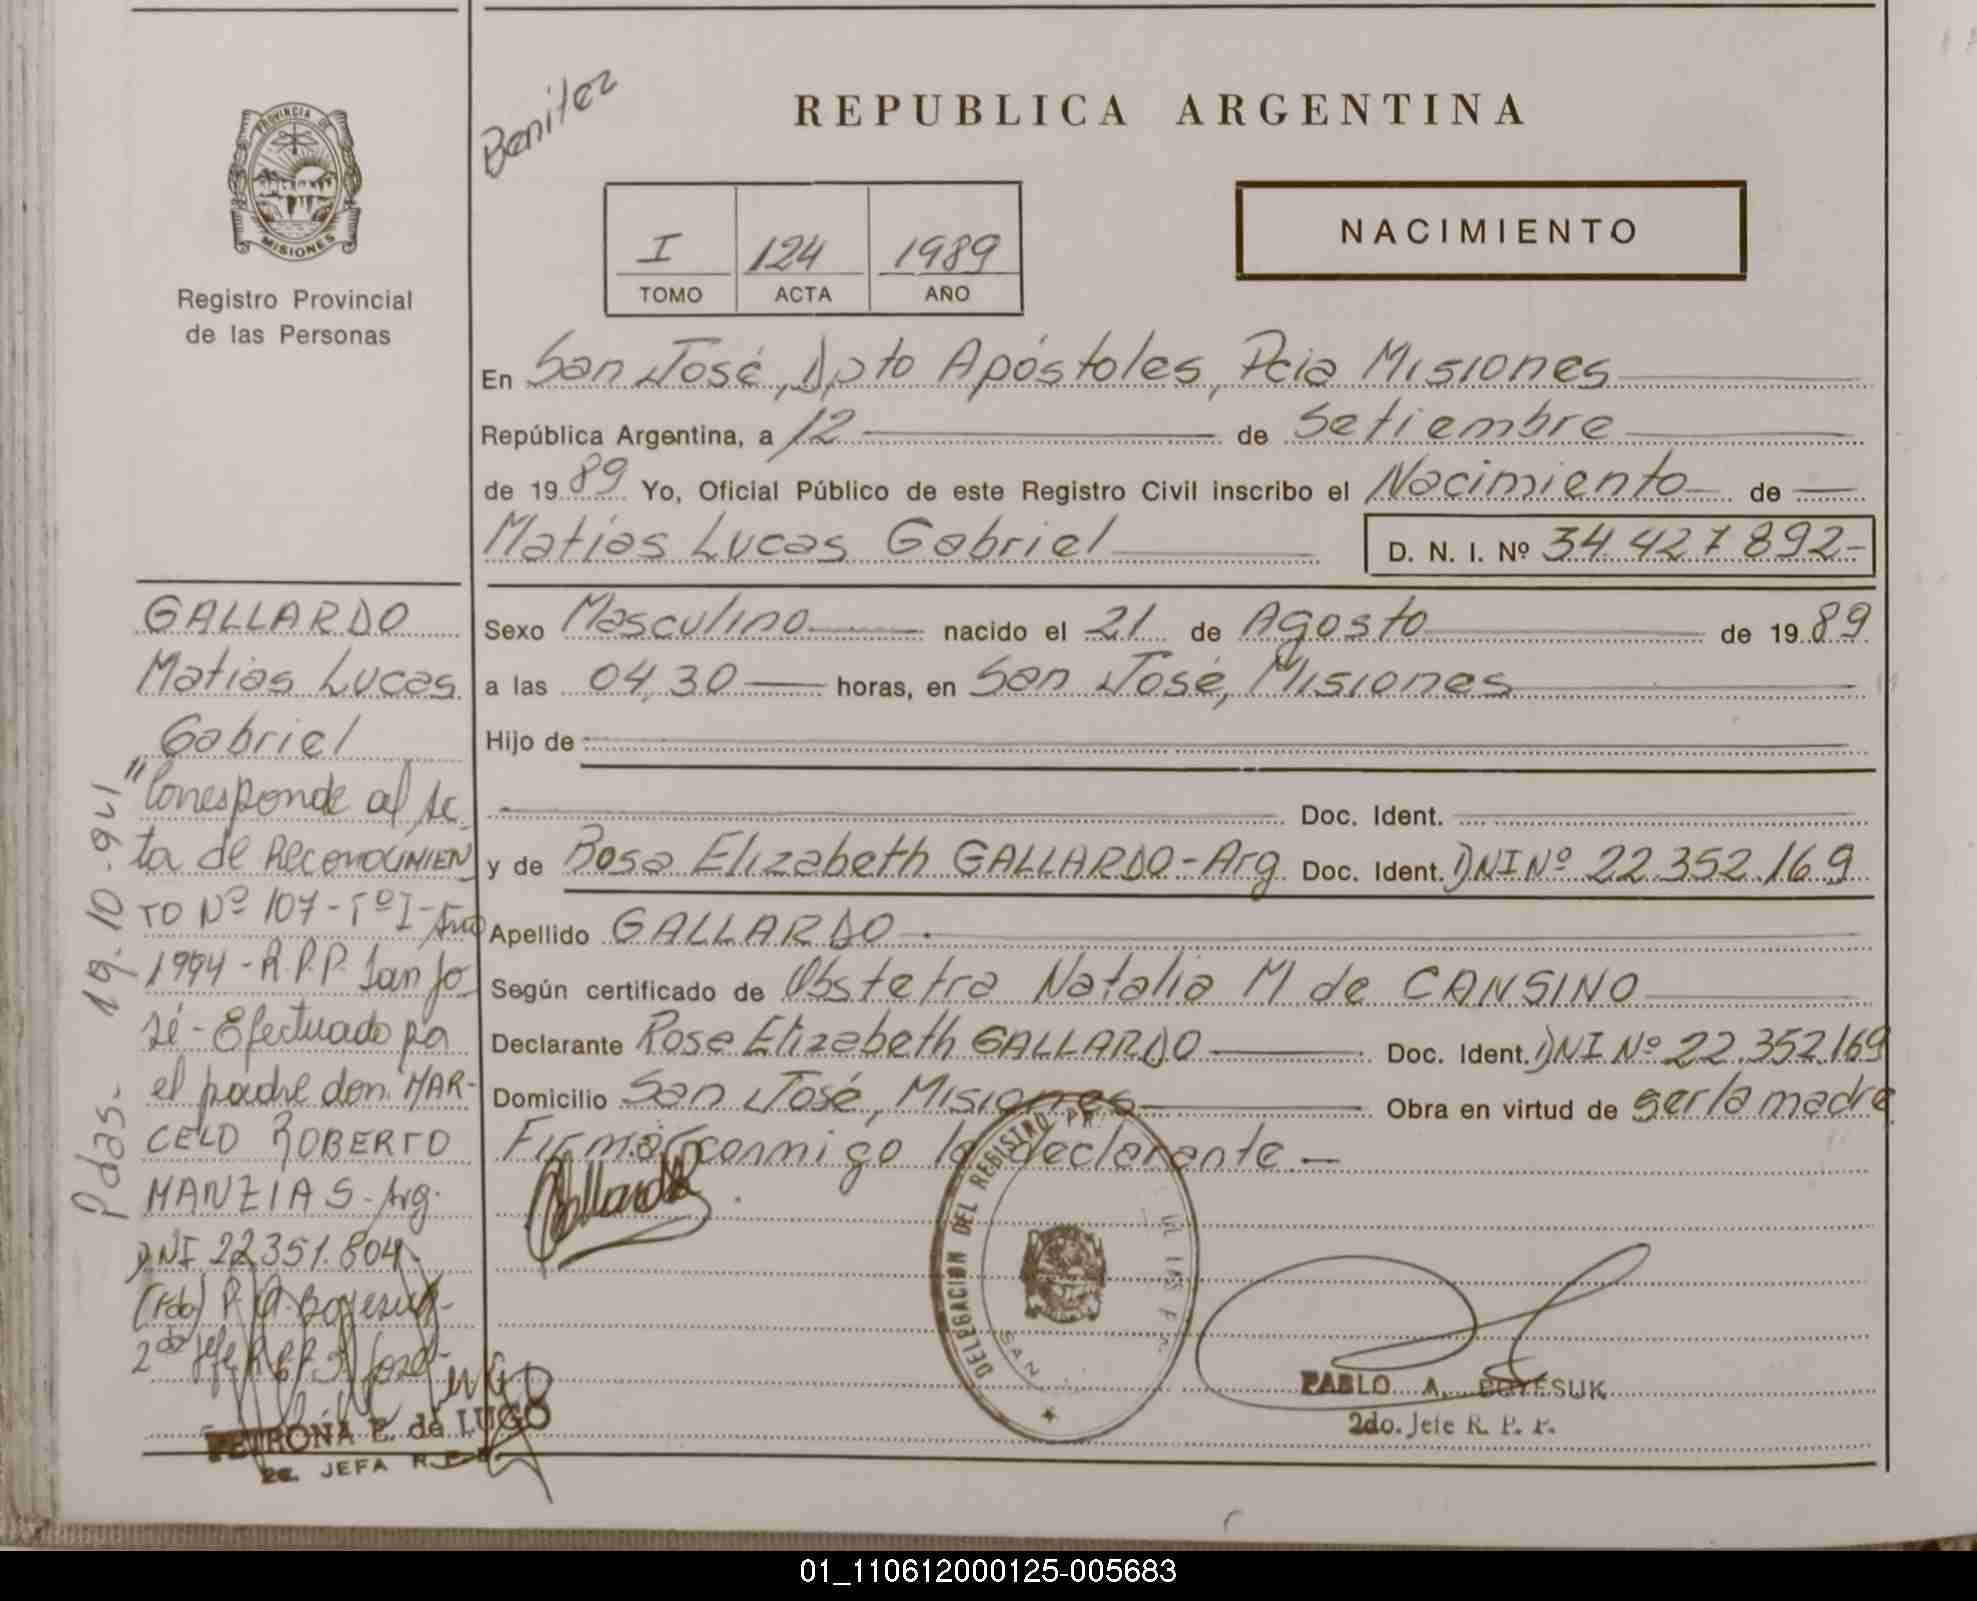 PROVINCIA DE
MISIONES
Registro Provincial
de las Personas
Benitez
REPUBLICA ARGENTINA
I 124 1989
TOMO ACTA AÑO
NACIMIENTO
En San José, Dpto Apóstoles, Pcia Misiones
República Argentina, a 12 de Setiembre
de 1989 Yo, Oficial Público de este Registro Civil inscribo el Nacimiento de
Matías Lucas Gabriel D. N. I. Nº 34.427.892-
Sexo Masculino nacido el 21 de Agosto de 1989
a las 04,30 horas, en San José, Misiones
Hijo de
Doc. Ident.
y de Rosa Elizabeth GALLARDO-Arg. Doc. Ident. DNI Nº 22.352.169
Apellido GALLARDO.
Según certificado de Obstetra Natalia M de CANSINO
Declarante Rosa Elizabeth GALLARDO Doc. Ident. DNI Nº 22.352.169
Domicilio San José, Misiones Obra en virtud de ser la madre
Firmó conmigo la declarante.—
Gallardo
DELEGACION DEL REGISTRO PR
DE LAS P
SAN
PABLO A. BOYESUK
2do. Jefe R. P. P.
GALLARDO
Matias Lucas
Gabriel
"Corresponde al Ac-
ta de RECONOCIMIEN
TO Nº 107-TºI-Año
1994-R.P.P. San Jo-
sé-Efectuado por
el padre don. MAR-
CELO ROBERTO
MANZIAS-Arg.
DNI 22.351.804
(Fdo) P. A. Boyesuk-
2do Jefe R.P.P. S. José-
Pdas. 19.10.94
PETRONA E. de LUGO
JEFA R. P. P.
01_110612000125-005683